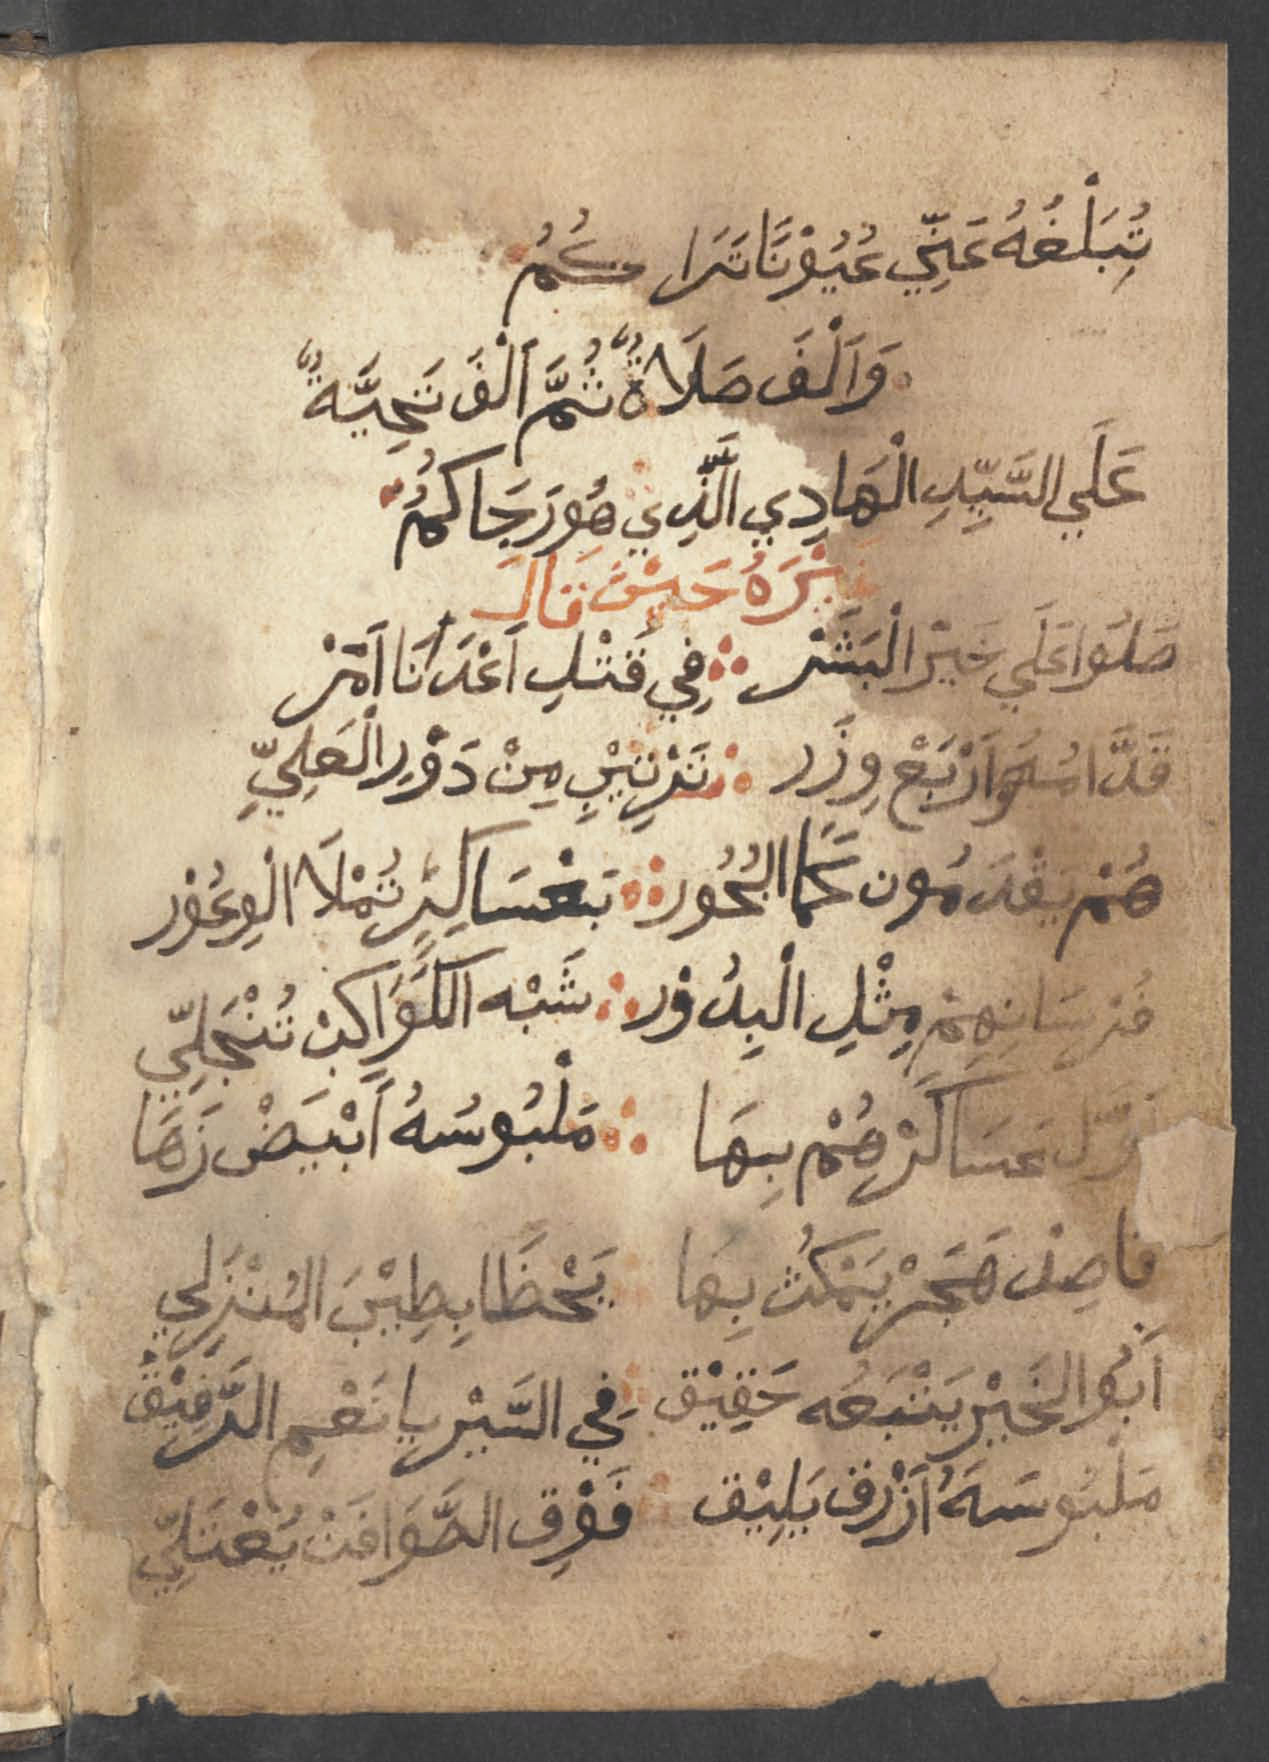 تُبَلِّغُهُ عَنِّي عُيُوْنًا تَرَاكُمُ
وَاَلْفَ صَلَاةٌ ثُمَّ اَلْفَ تَحِيَّةٌ
عَلَي السَّيِّدِ الْهَادِي الَّذِي هُوَ رَجَاكُمُ
غَيْرَهُ حَيْثُ قَالَ
صَلُوا عَلَي خَيْرِ الْبَشَرْ ∴ فِي قَتْلِ اَعْدَانَا اَمَرْ
اَرْبَعْ وِزَر ∴ مِنْ دَوْرِ الْعَلِيِّ
هُمْ يَقْدَمُون كَمَا الْبُحُور ∴ بَعْسَاكِرٍ تُمْلَا الْوِعُوْر
فُرْسَانِهِمْ مِثْلِ الْبِدُوْر ∴ شَبْه الْكَوَاكِبْ تُنْجَلِيِّ
اَوَّل عَسَاكَرْهُمْ بِهَا ∴ مَلْبُوسُهُ اَبْيَضْ زَهَا
هَجَرْ يَمْكُثْ بِهَا ∴ يَحْظَا بِطِيْبَ الْمُنْزِلِي
اَبُو الْخَيْرْ يَتْبَعُه حَقِيْق ∴ فِي السَّيْرِ يَا نَعْمِ الرَّفِيْق
مَلْبُوسَهُ اَزْرَق يَلِيْق ∴ فَوْقِ الصَّوَافَنْ يُعْتَلِيِّ